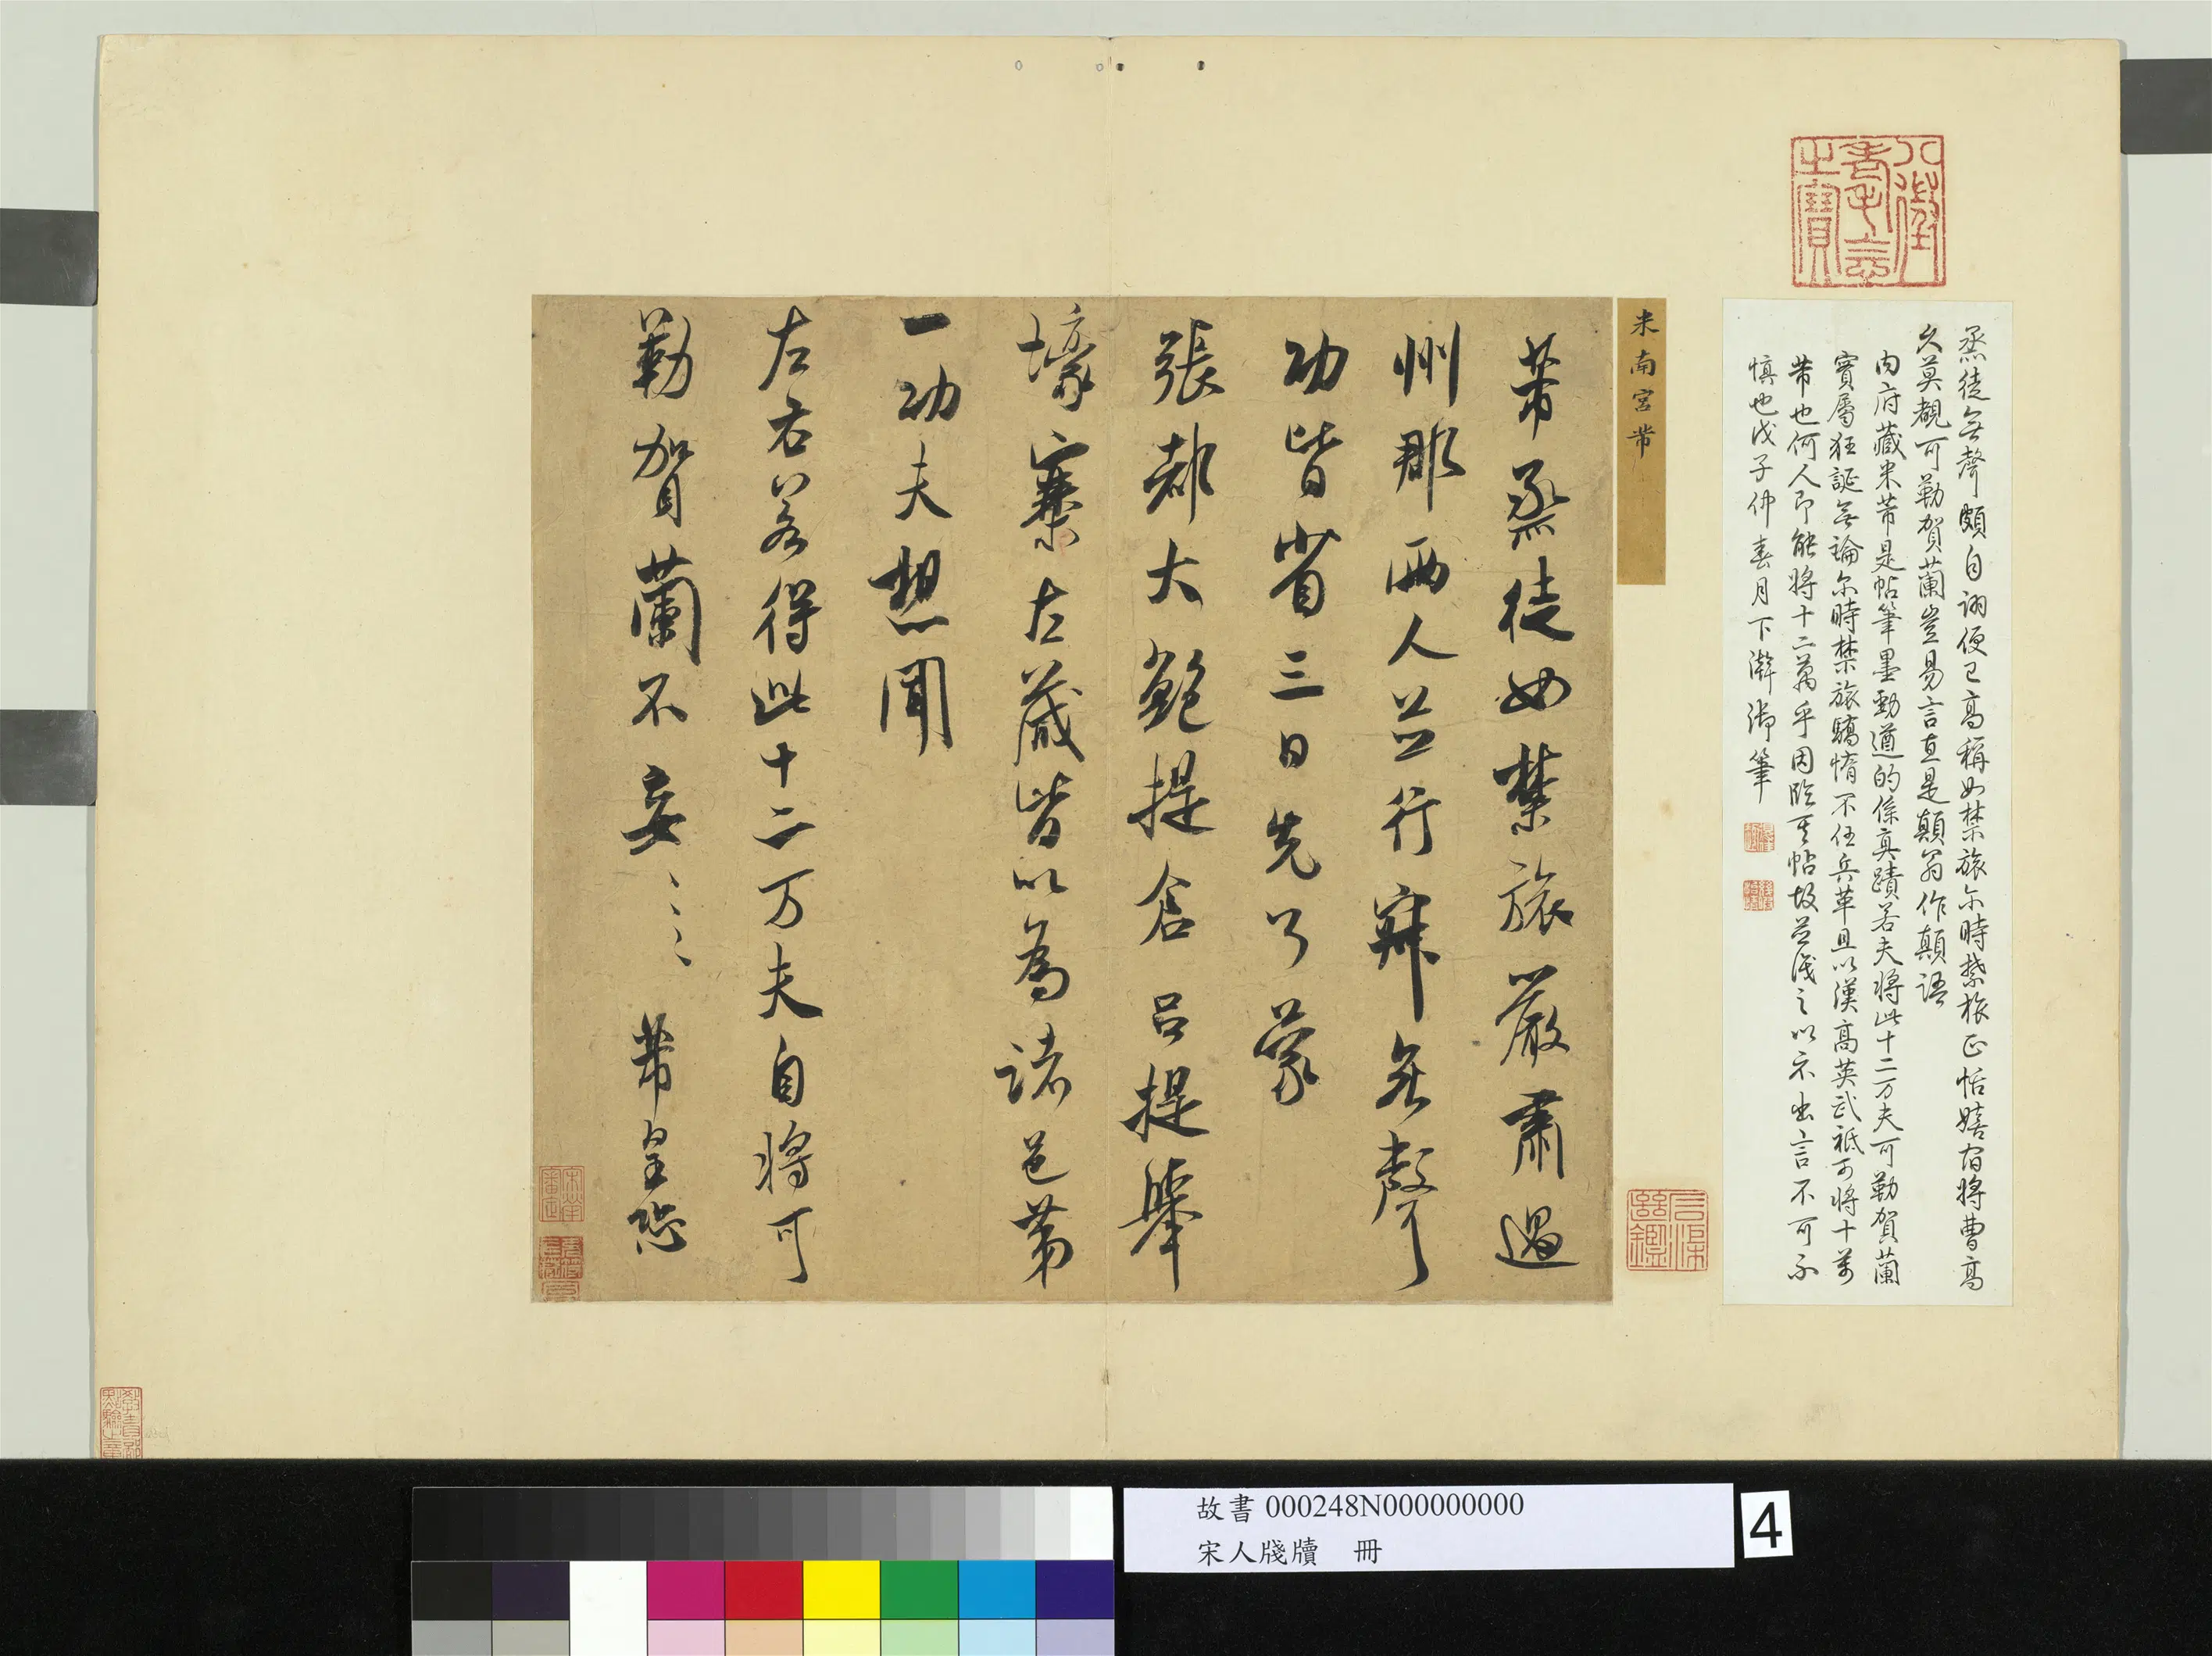 八徵耄念之寶
烝徒無聲頗自詡便已高稱如禁旅尓時禁旅正恬嬉宿將曹高
久莫覩可勒賀蘭豈易言直是顛翁作顛語
內府藏米芾是帖筆墨勁遒的係真蹟若夫將此十二万夫可勒賀蘭
實屬狂誕無論尓時禁旅驕惰不任兵革且以漢高英武祗可將十萬
芾也何人即能將十二萬乎因臨其帖故並識之以示出言不可不
慎也戊子仲春月下澣御筆
米南宮芾
芾烝徒如禁旅嚴肅過
州郡兩人並行寂無聲
功皆省三日先了蒙
張都大鮑提倉呂提舉
壕寨左藏皆以為諸邑第
一功夫想聞
左右若得此十二万夫自將可
勒賀蘭不妄〻〻芾皇恐
故書 000248N000000000
宋人牋牘 冊
4